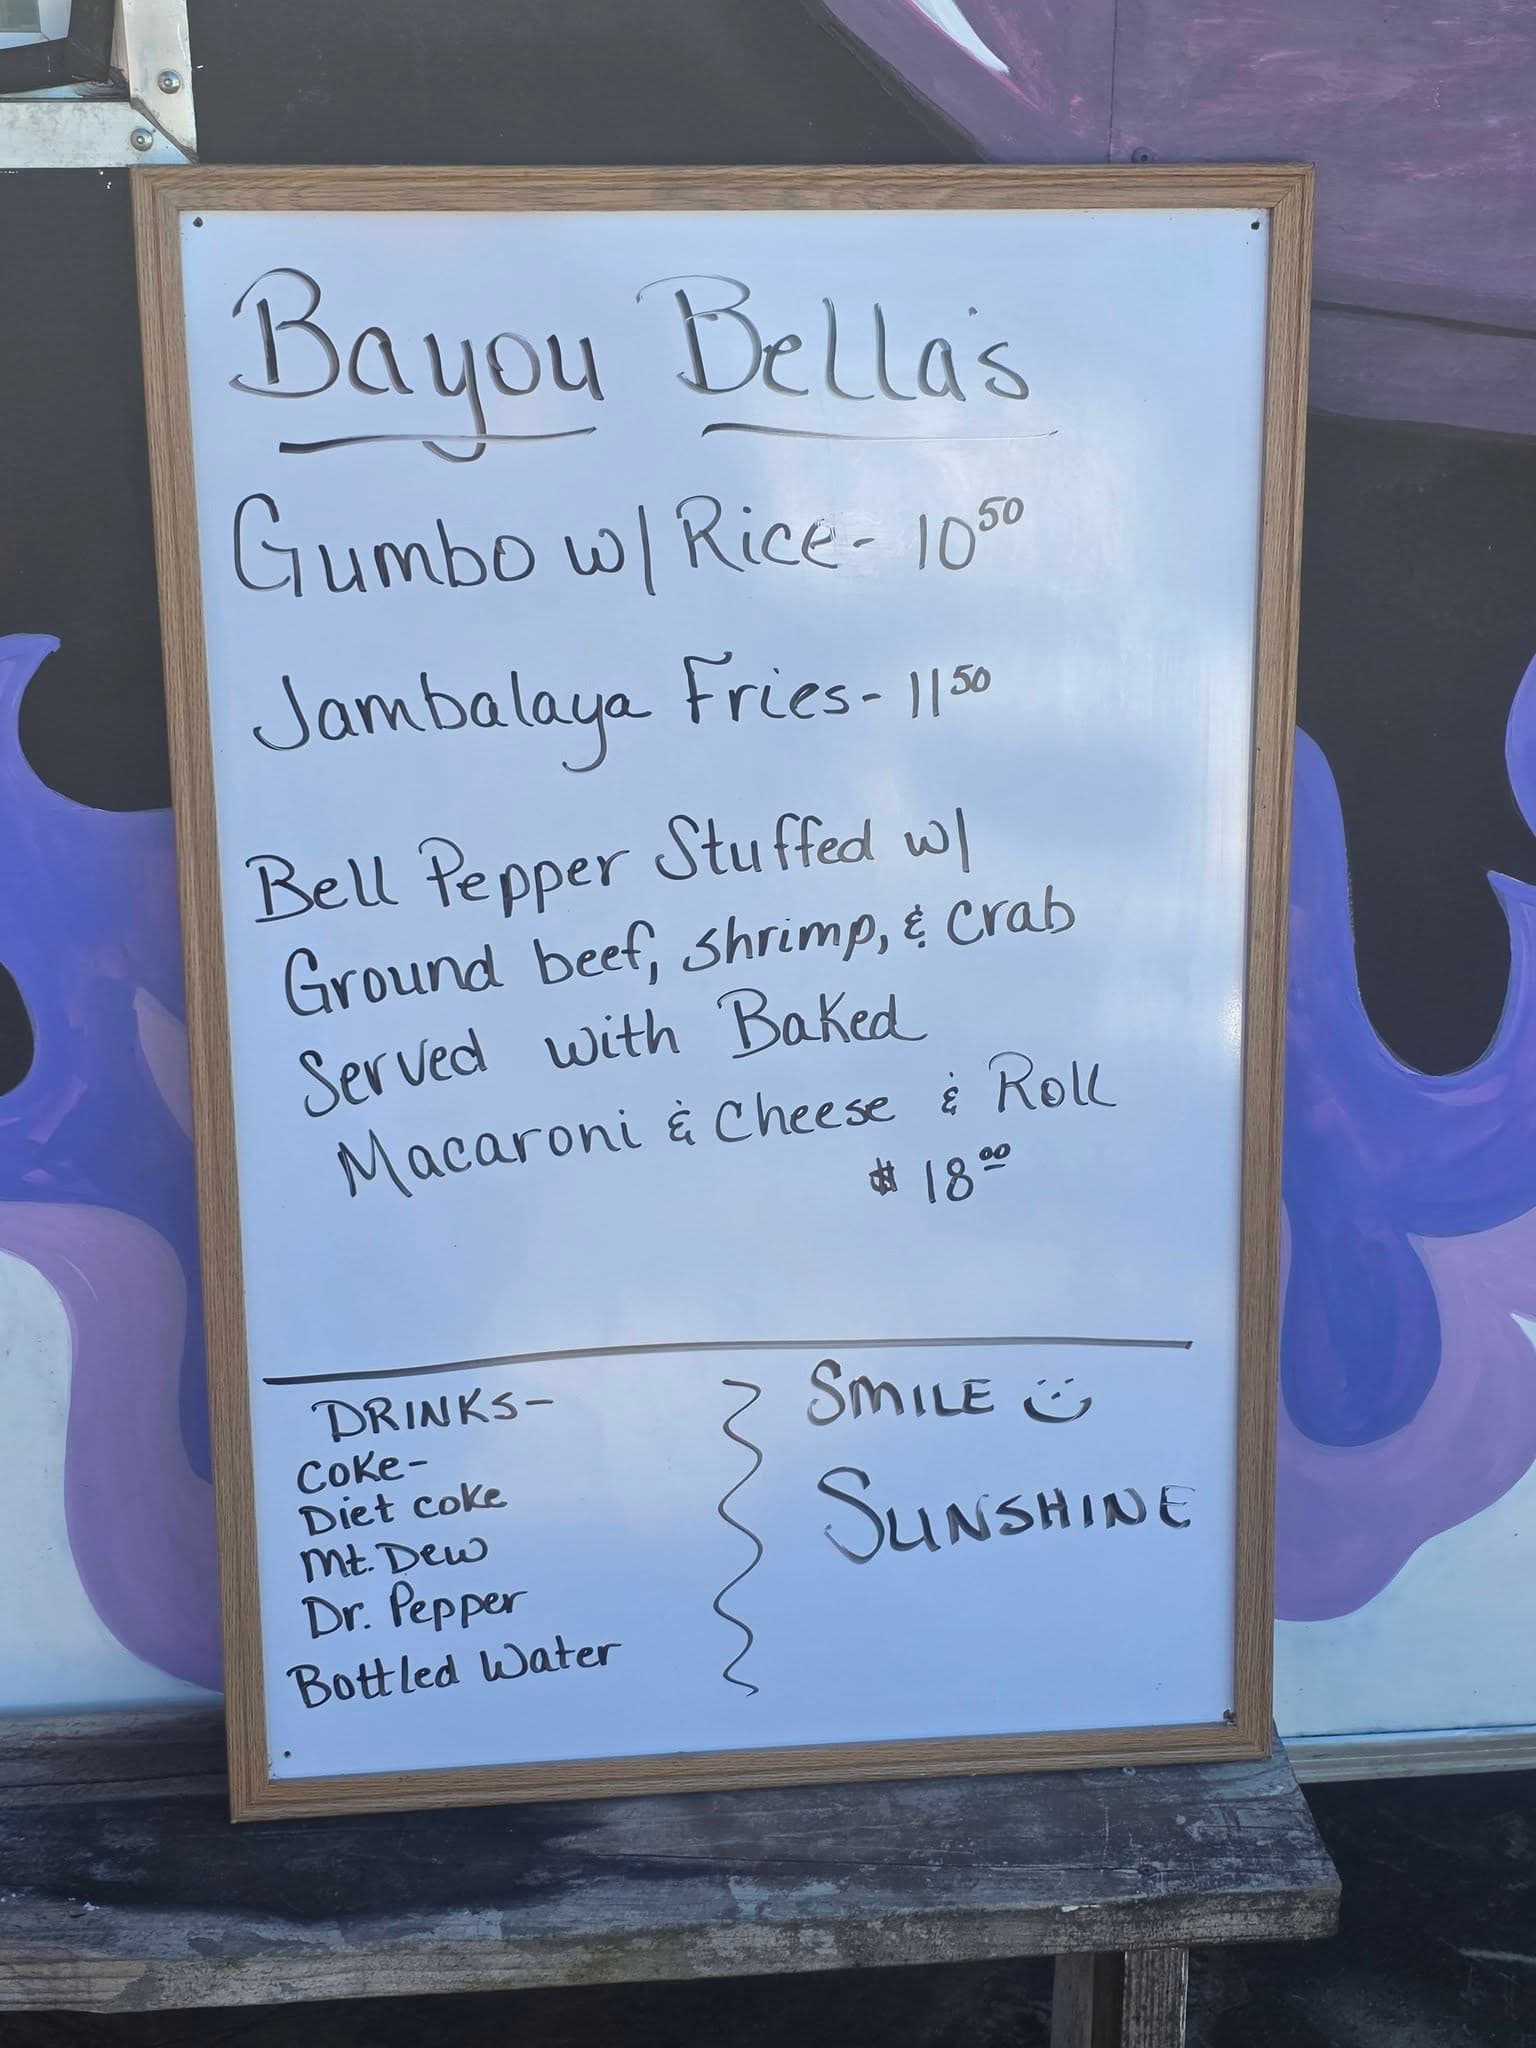 Bayou Bella's
Gumbo w/ Rice - 10 50
Jambalaya Fries - 11 50
Bell Pepper Stuffed w/
Ground beef, shrimp, & crab
Served with Baked
Macaroni & Cheese & Roll
$ 18 00
DRINKS-
Coke-
Diet coke
Mt. Dew
Dr. Pepper
Bottled Water
SMILE
SUNSHINE